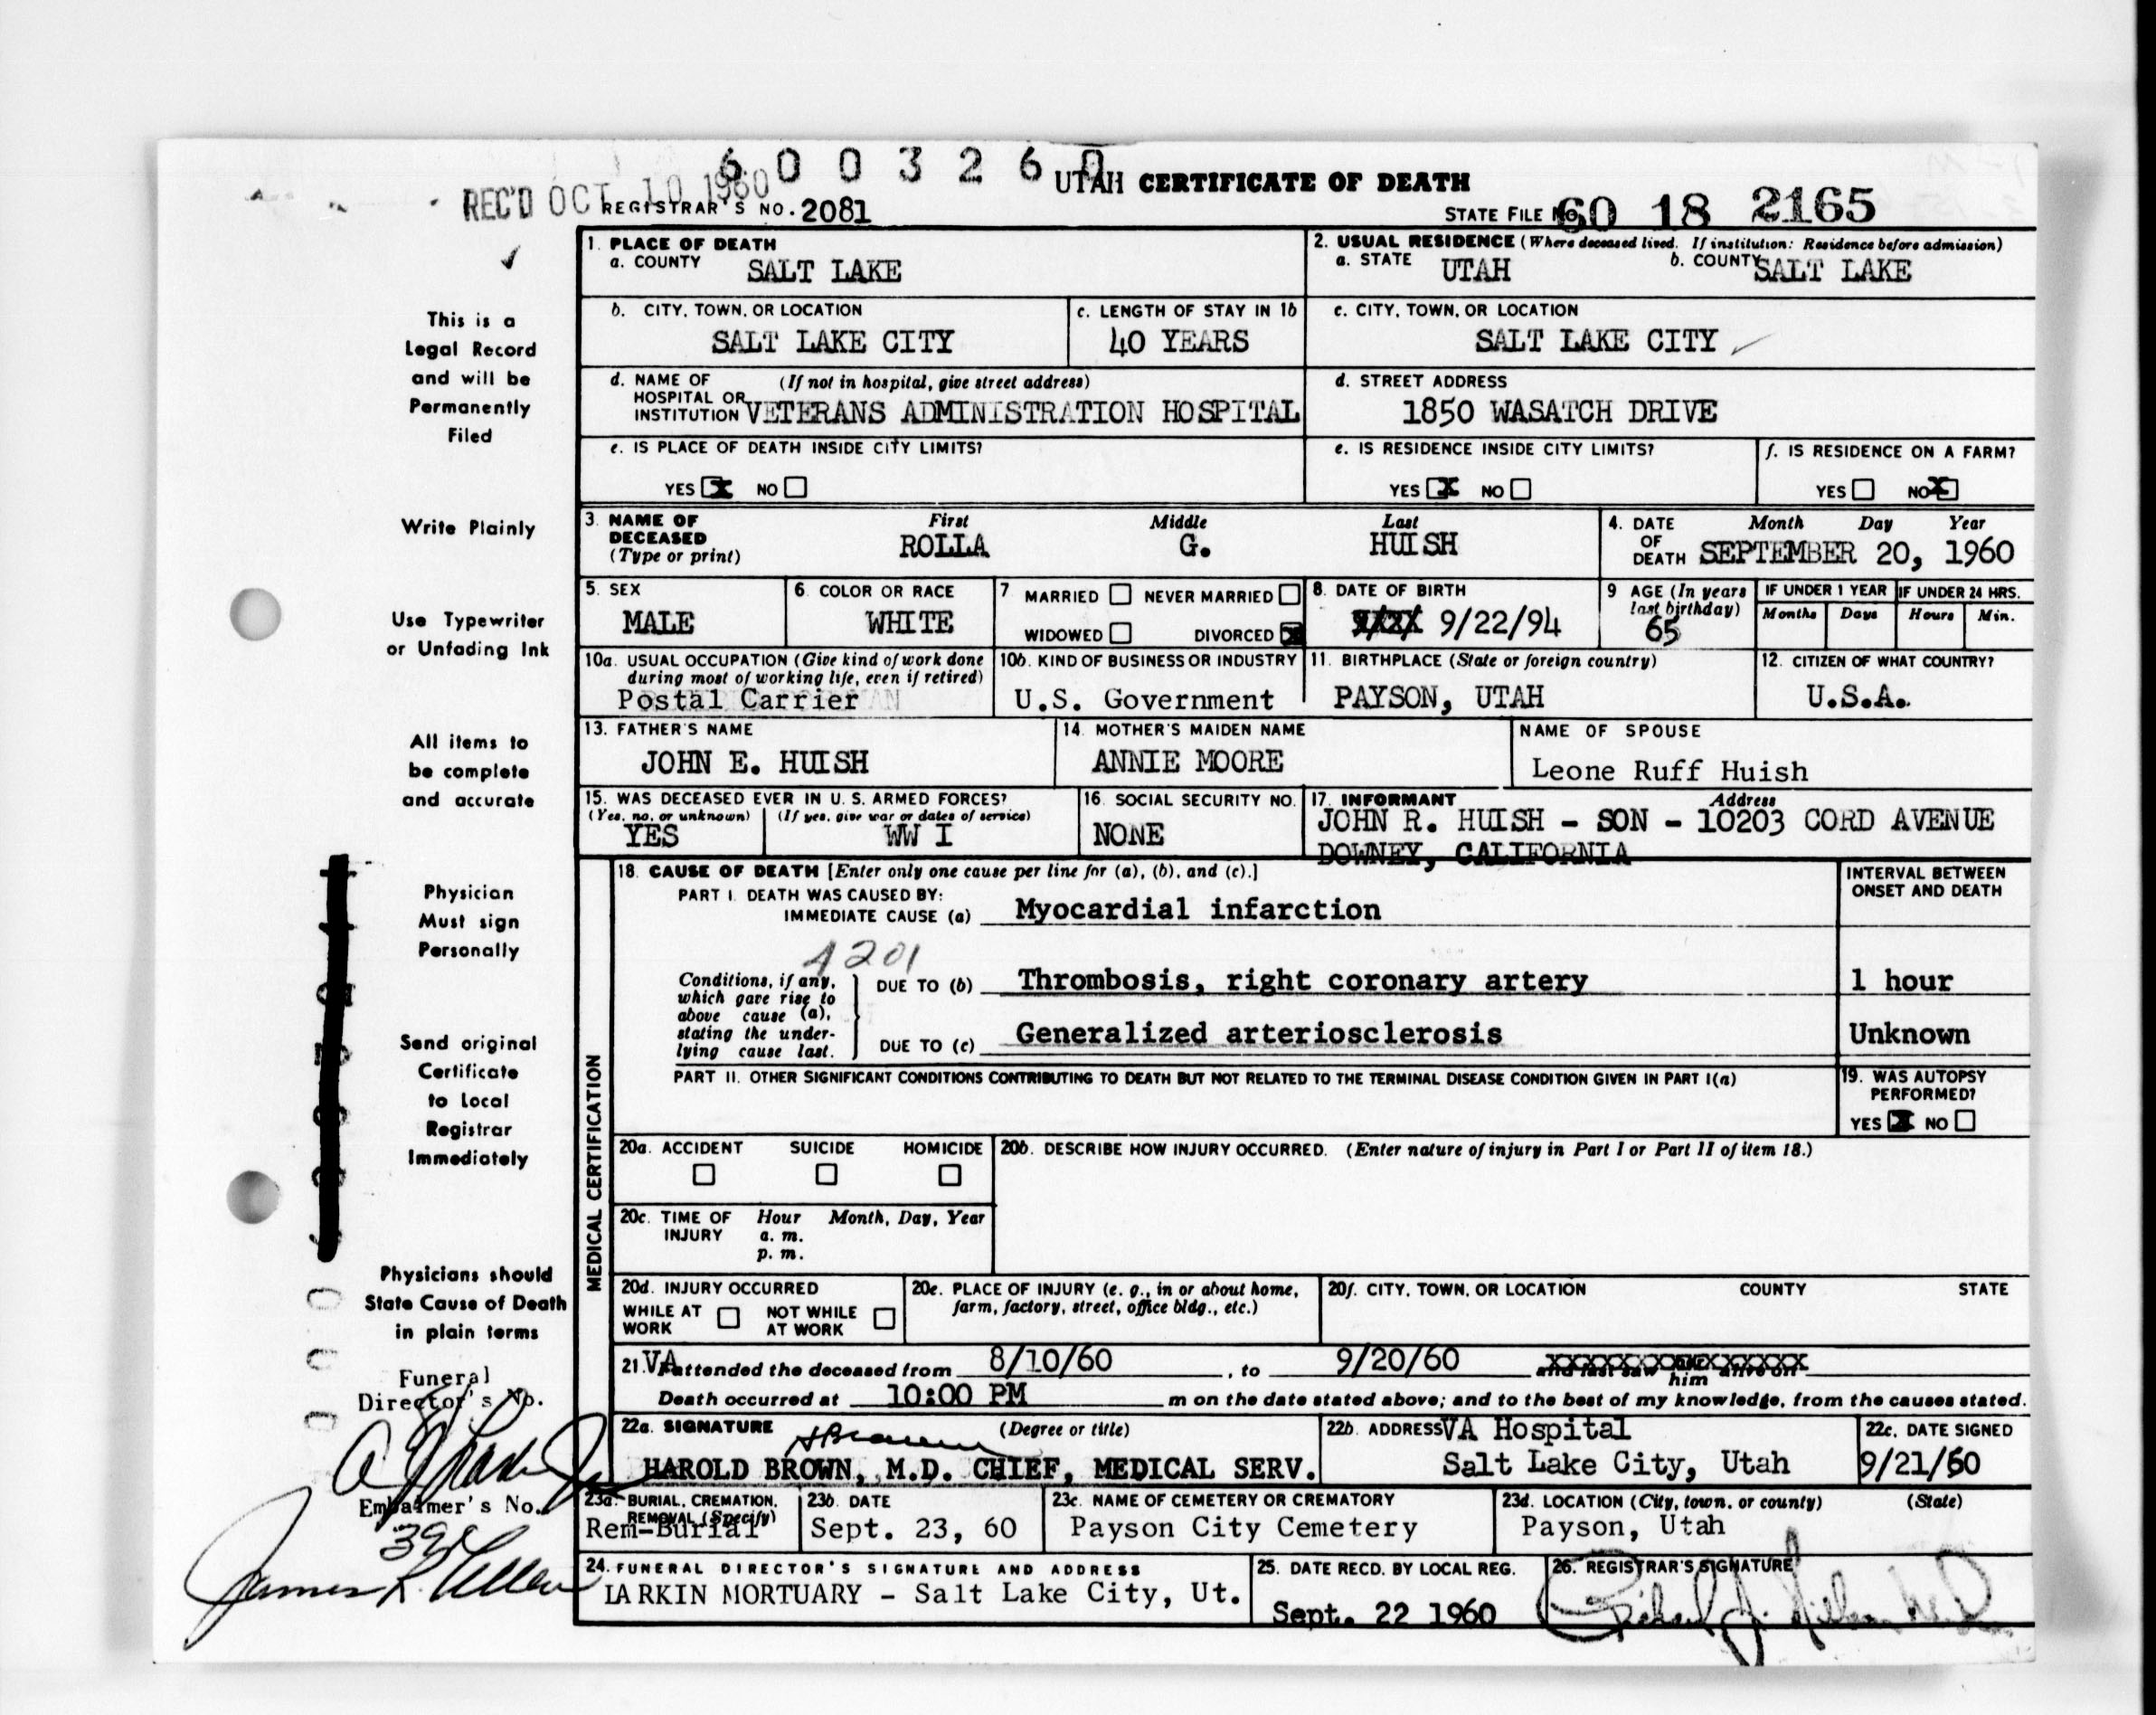 6 0 0 3 2 6 0
REC'D OCT 10 1960
UTAH CERTIFICATE OF DEATH
REGISTRAR'S NO. 2081
STATE FILE NO. 60 18 2165
This is a
Legal Record
and will be
Permanently
Filed
Write Plainly
Use Typewriter
or Unfading Ink
All items to
be complete
and accurate
Physician
Must sign
Personally
Send original
Certificate
to Local
Registrar
Immediately
Physicians should
State Cause of Death
in plain terms
Funeral
Director's No.
Embalmer's No.
1. PLACE OF DEATH
a. COUNTY SALT LAKE
2. USUAL RESIDENCE (Where deceased lived. If institution: Residence before admission)
a. STATE UTAH b. COUNTY SALT LAKE
b. CITY, TOWN, OR LOCATION
SALT LAKE CITY
c. LENGTH OF STAY IN 1b
40 YEARS
c. CITY, TOWN, OR LOCATION
SALT LAKE CITY
d. NAME OF (If not in hospital, give street address)
HOSPITAL OR
INSTITUTION VETERANS ADMINISTRATION HOSPITAL
d. STREET ADDRESS
1850 WASATCH DRIVE
e. IS PLACE OF DEATH INSIDE CITY LIMITS?
YES X NO
e. IS RESIDENCE INSIDE CITY LIMITS?
YES X NO
f. IS RESIDENCE ON A FARM?
YES NO X
3. NAME OF
DECEASED
(Type or print)
First Middle Last
ROLLA G. HUISH
4. DATE
OF
DEATH
Month Day Year
SEPTEMBER 20, 1960
5. SEX
MALE
6. COLOR OR RACE
WHITE
7 MARRIED NEVER MARRIED
WIDOWED DIVORCED X
8. DATE OF BIRTH
9/22/94
9 AGE (In years
last birthday)
65
IF UNDER 1 YEAR
Months Days
IF UNDER 24 HRS.
Hours Min.
10a. USUAL OCCUPATION (Give kind of work done
during most of working life, even if retired)
Postal Carrier
10b. KIND OF BUSINESS OR INDUSTRY
U.S. Government
11. BIRTHPLACE (State or foreign country)
PAYSON, UTAH
12. CITIZEN OF WHAT COUNTRY?
U.S.A.
13. FATHER'S NAME
JOHN E. HUISH
14. MOTHER'S MAIDEN NAME
ANNIE MOORE
NAME OF SPOUSE
Leone Ruff Huish
15. WAS DECEASED EVER IN U. S. ARMED FORCES?
(Yes, no, or unknown) (If yes, give war or dates of service)
YES WW I
16. SOCIAL SECURITY NO.
NONE
17. INFORMANT Address
JOHN R. HUISH - SON - 10203 CORD AVENUE
DOWNEY, CALIFORNIA
MEDICAL CERTIFICATION
18. CAUSE OF DEATH [Enter only one cause per line for (a), (b), and (c).]
INTERVAL BETWEEN
ONSET AND DEATH
PART I. DEATH WAS CAUSED BY:
IMMEDIATE CAUSE (a) Myocardial infarction
4201
Conditions, if any,
which gave rise to
above cause (a),
stating the under-
lying cause last.
DUE TO (b) Thrombosis, right coronary artery 1 hour
DUE TO (c) Generalized arteriosclerosis Unknown
PART II. OTHER SIGNIFICANT CONDITIONS CONTRIBUTING TO DEATH BUT NOT RELATED TO THE TERMINAL DISEASE CONDITION GIVEN IN PART I(a)
19. WAS AUTOPSY
PERFORMED?
YES X NO
20a. ACCIDENT SUICIDE HOMICIDE
20b. DESCRIBE HOW INJURY OCCURRED. (Enter nature of injury in Part I or Part II of item 18.)
20c. TIME OF
INJURY
Hour Month, Day, Year
a. m.
p. m.
20d. INJURY OCCURRED
WHILE AT
WORK
NOT WHILE
AT WORK
20e. PLACE OF INJURY (e. g., in or about home,
farm, factory, street, office bldg., etc.)
20f. CITY, TOWN, OR LOCATION COUNTY STATE
21. VA attended the deceased from 8/10/60, to 9/20/60 and last saw him alive on
Death occurred at 10:00 PM m on the date stated above; and to the best of my knowledge, from the causes stated.
22a. SIGNATURE (Degree or title)
HBrown
HAROLD BROWN, M.D. CHIEF, MEDICAL SERV.
22b. ADDRESS VA Hospital
Salt Lake City, Utah
22c. DATE SIGNED
9/21/60
23a. BURIAL, CREMATION,
REMOVAL (Specify)
Rem-Burial
23b. DATE
Sept. 23, 60
23c. NAME OF CEMETERY OR CREMATORY
Payson City Cemetery
23d. LOCATION (City, town, or county) (State)
Payson, Utah
24. FUNERAL DIRECTOR'S SIGNATURE AND ADDRESS
LARKIN MORTUARY - Salt Lake City, Ut.
25. DATE RECD. BY LOCAL REG.
Sept. 22 1960
26. REGISTRAR'S SIGNATURE